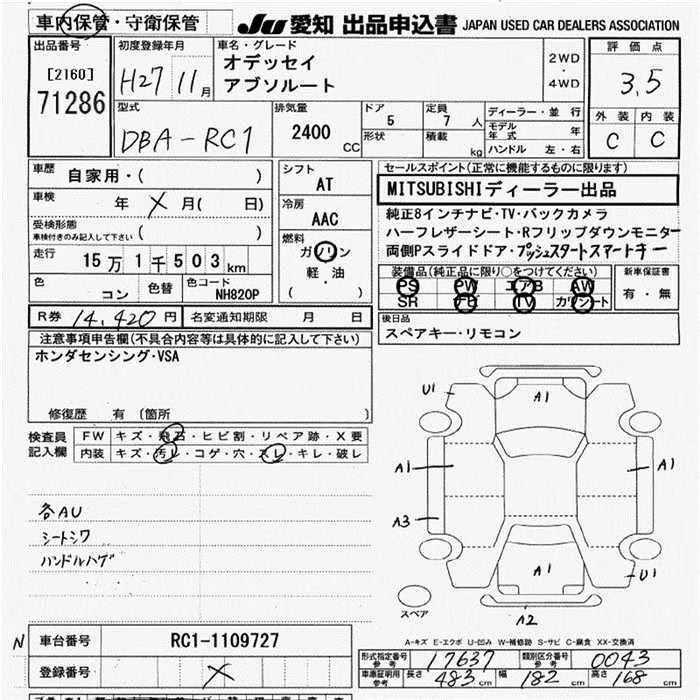 車内保管・守衛保管
JU 愛知 出品申込書 JAPAN USED CAR DEALERS ASSOCIATION
出品番号
[2160]
71286
初度登録年月
H27 11月
車名・グレード
オデッセイ
アブソルート
2WD
・
4WD
評価点
3.5
外装 内装
C C
型式
DBA-RC1
排気量
2400 CC
ドア 5
形状
定員 7 人
積載 kg
ディーラー・並行
モデル年式 年
ハンドル 左・右
車歴 自家用・( )
車検 年 X 月( 日)
受検形態
車検付きのみ記入して下さい ( )
走行 15万1千503km
色 コン 色替 色コード NH820P
シフト
AT
冷房
AAC
燃料
ガソリン
軽・油
( )
セールスポイント(正常に機能するものに限ります)
MITSUBISHIディーラー出品
純正8インチナビ・TV・バックカメラ
ハーフレザーシート・Rフリップダウンモニター
両側Pスライドドア・プッシュスタートスマートキー
装備品(純正品に限り○をつけてください)
PS PW エアB AW
SR ナビ TV カワシート
新車保証書
有・無
R券 14,420円 名変通知期限 月 日
後日品
スペアキー・リモコン
注意事項申告欄(不具合内容等は具体的に記入して下さい)
ホンダセンシング・VSA
修復歴 有 (箇所 )
検査員
記入欄
FW キズ・飛石・ヒビ割・リペア跡・X要
内装 キズ・汚レ・コゲ・穴・スレ・キレ・破レ
各AU
シートシワ
ハンドルハゲ
U1
A1
A1
A1
A3
A1
U1
A2
スペア
A-キズ E-エクボ U-凹み W-補修跡 S-サビ C-腐食 XX-交換済
N 車台番号 RC1-1109727
登録番号 X
形式指定番号 参考 17637 類別区分番号 参考 0043
車庫証明用 参考 長さ 483 cm 幅 182 cm 高さ 168 cm